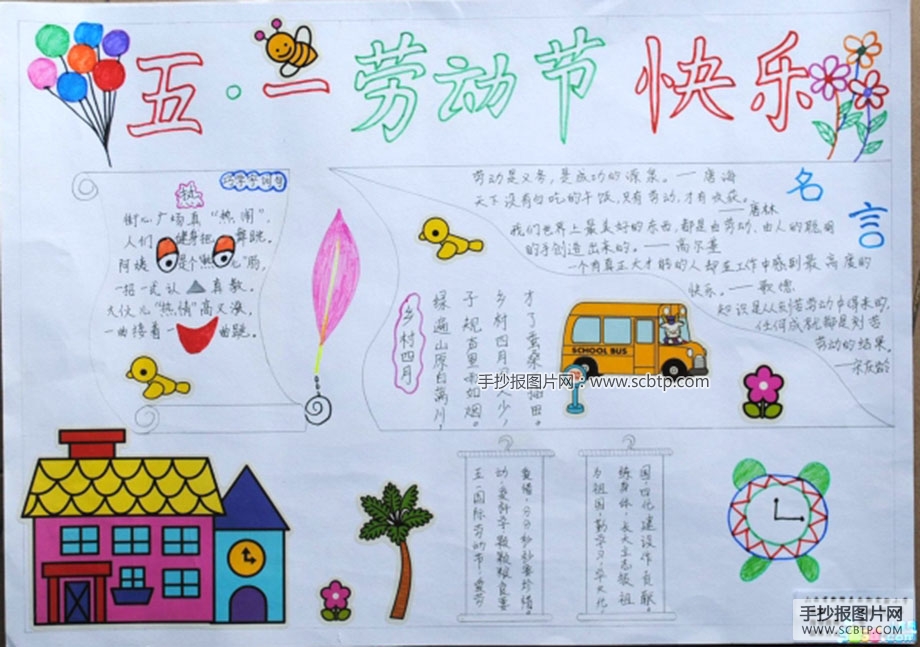 五·一劳动节快乐
巧学字词句
热
街心广场真“热闹”，
人们 健身把 舞跳。
阿姨 是个“热 心”肠，
一招一式认 真教。
大伙儿“热情”高又涨，
一曲接着一 曲跳。
名言
劳动是义务，是成功的源泉。——唐海
天下没有白吃的午饭，只有劳动，才有收获。
——唐林
我们世界上最美好的东西，都是由劳动、由人的聪明
的手创造出来的。——高尔基
一个有真正大才能的人却在工作中感到最高度的
快乐。——歌德
知识是从刻苦劳动中得来的，
任何成就都是刻苦
劳动的结果。
——宋庆龄
乡村四月
绿遍山原白满川，
子规声里雨如烟。
乡村四月闲人少，
才了蚕桑又插田。
SCHOOL BUS
手抄报图片网：www.scbtp.com
五一国际劳动节，爱劳
动，爱科学，颗颗粮食要
爱惜，分分秒秒要珍惜。
为祖国，勤学习，学文化
练身体，长大立志报祖
国，四化建设作贡献。
手抄报图片网
WWW.SCBTP.COM